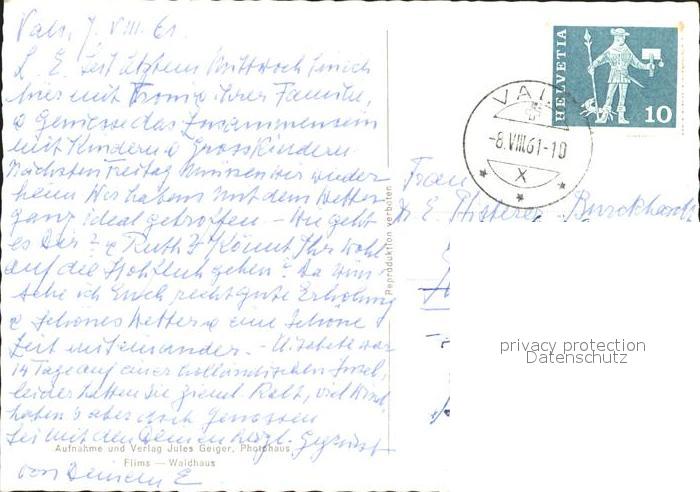 Vals, 7. VIII. 61.
L. E. Seit letztem Mittwoch bin ich
hier mit Tromp u ihrer Familie,
u geniesse das Zusammensein
mit Kindern u Grosskindern
Nächsten Freitag müssen wir wieder
heim Wir habens mit dem Wetter
ganz ideal getroffen – Wie geht
es Dir? u Ruth? Könnt Ihr wohl
auf die Hohfluh gehen? Da wün-
sche ich Euch recht gute Erholung
u schönes Wetter u eine schöne
Zeit miteinander. – Elisabeth war
14 Tage auf einer holländischen Insel,
leider hatten sie ziemli kalt, viel Wind,
haben's aber doch genossen
Sei mit den Deinen herzl. gegrüsst
von Deinem E
Aufnahme und Verlag Jules Geiger, Photohaus
Flims — Waldhaus
Reproduktion verboten
HELVETIA
10
VALS
-8.VIII.61-10
X
Frau
Dr E. Pfisterer-Burckhardt
privacy protection
Datenschutz